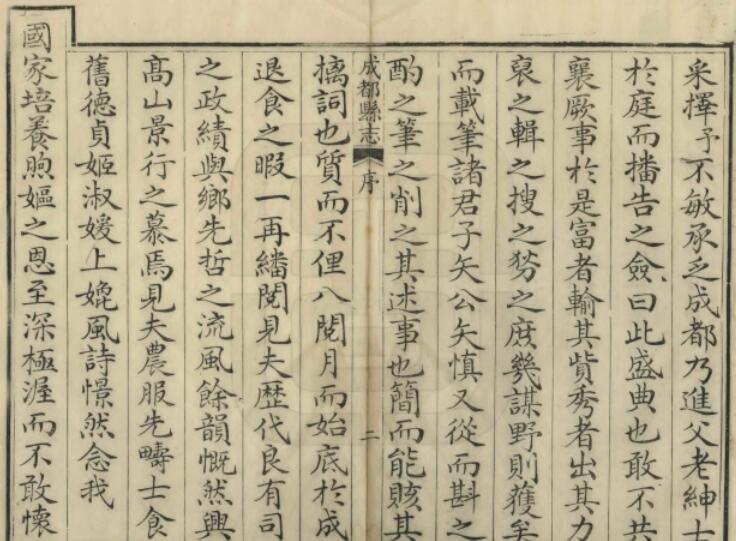 采擇予不敏承乏成都乃進父老紳士
於庭而播告之僉曰此盛典也敢不共
襄厥事於是富者輸其貲秀者出其力
裒之輯之搜之勞之庶幾謀野則獲矣
而載筆諸君子矢公矢慎又從而斟之
酌之筆之削之其述事也簡而能賅其
成都縣志 序 二
摛詞也質而不俚八閱月而始底於成
退食之暇一再繙閱見夫歷代良有司
之政績與鄉先哲之流風餘韻慨然興
高山景行之慕焉見夫農服先疇士食
舊德貞姬淑媛上媲風詩憬然念我
國家培養煦嫗之恩至深極渥而不敢懷